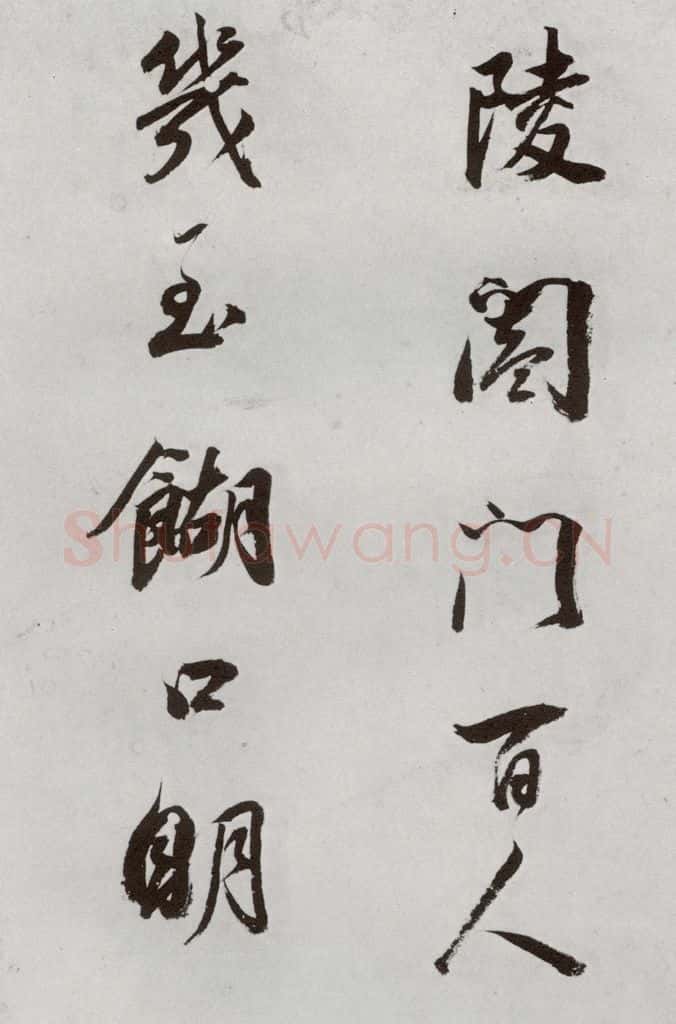 陵闔門百人
幾至餬口明
Shufawang.CN